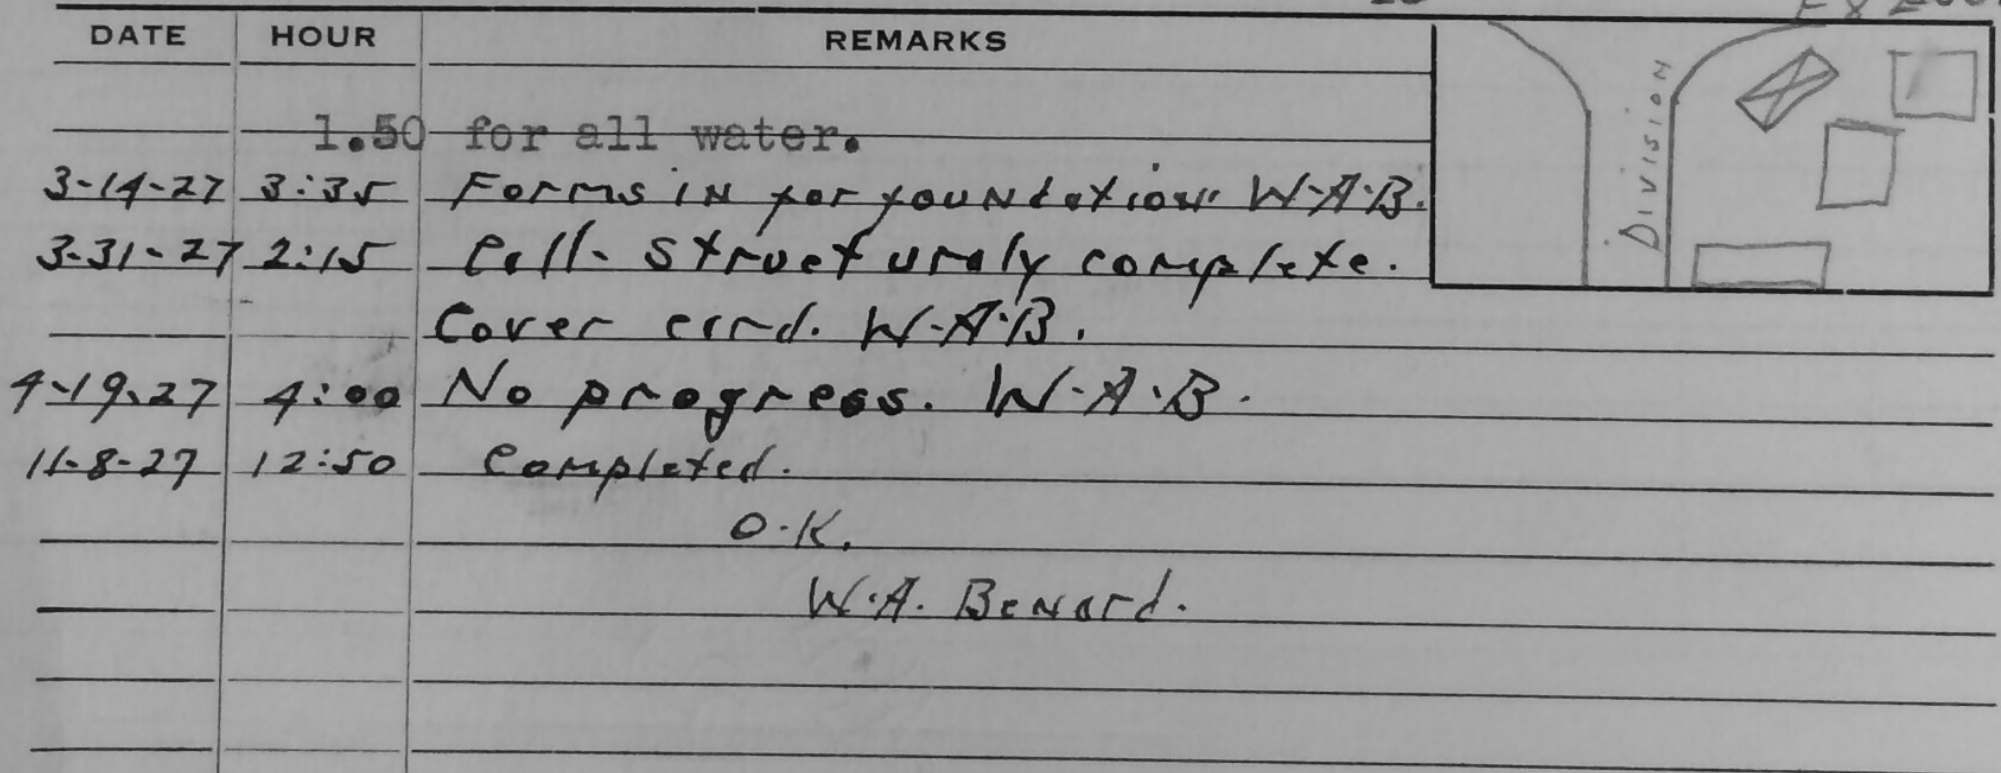 DATE HOUR REMARKS
1.50 for all water.
3-14-27 3:35 Forms in for foundation W.A.B.
3-31-27 2:15 Call. Structuraly complete.
Cover card. W.A.B.
4-19-27 4:00 No progress. W.A.B.
11-8-27 12:50 Completed.
O.K.
W.A. Benard.
DIVISION